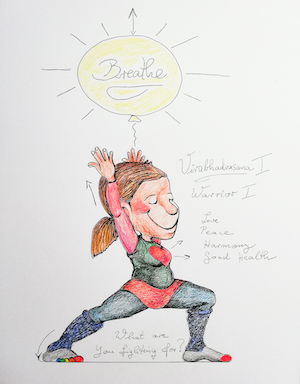 Breathe
Virabhadrasana I
Warrior I
Love
Peace
Harmony
Good Health
What are
you fighting for?